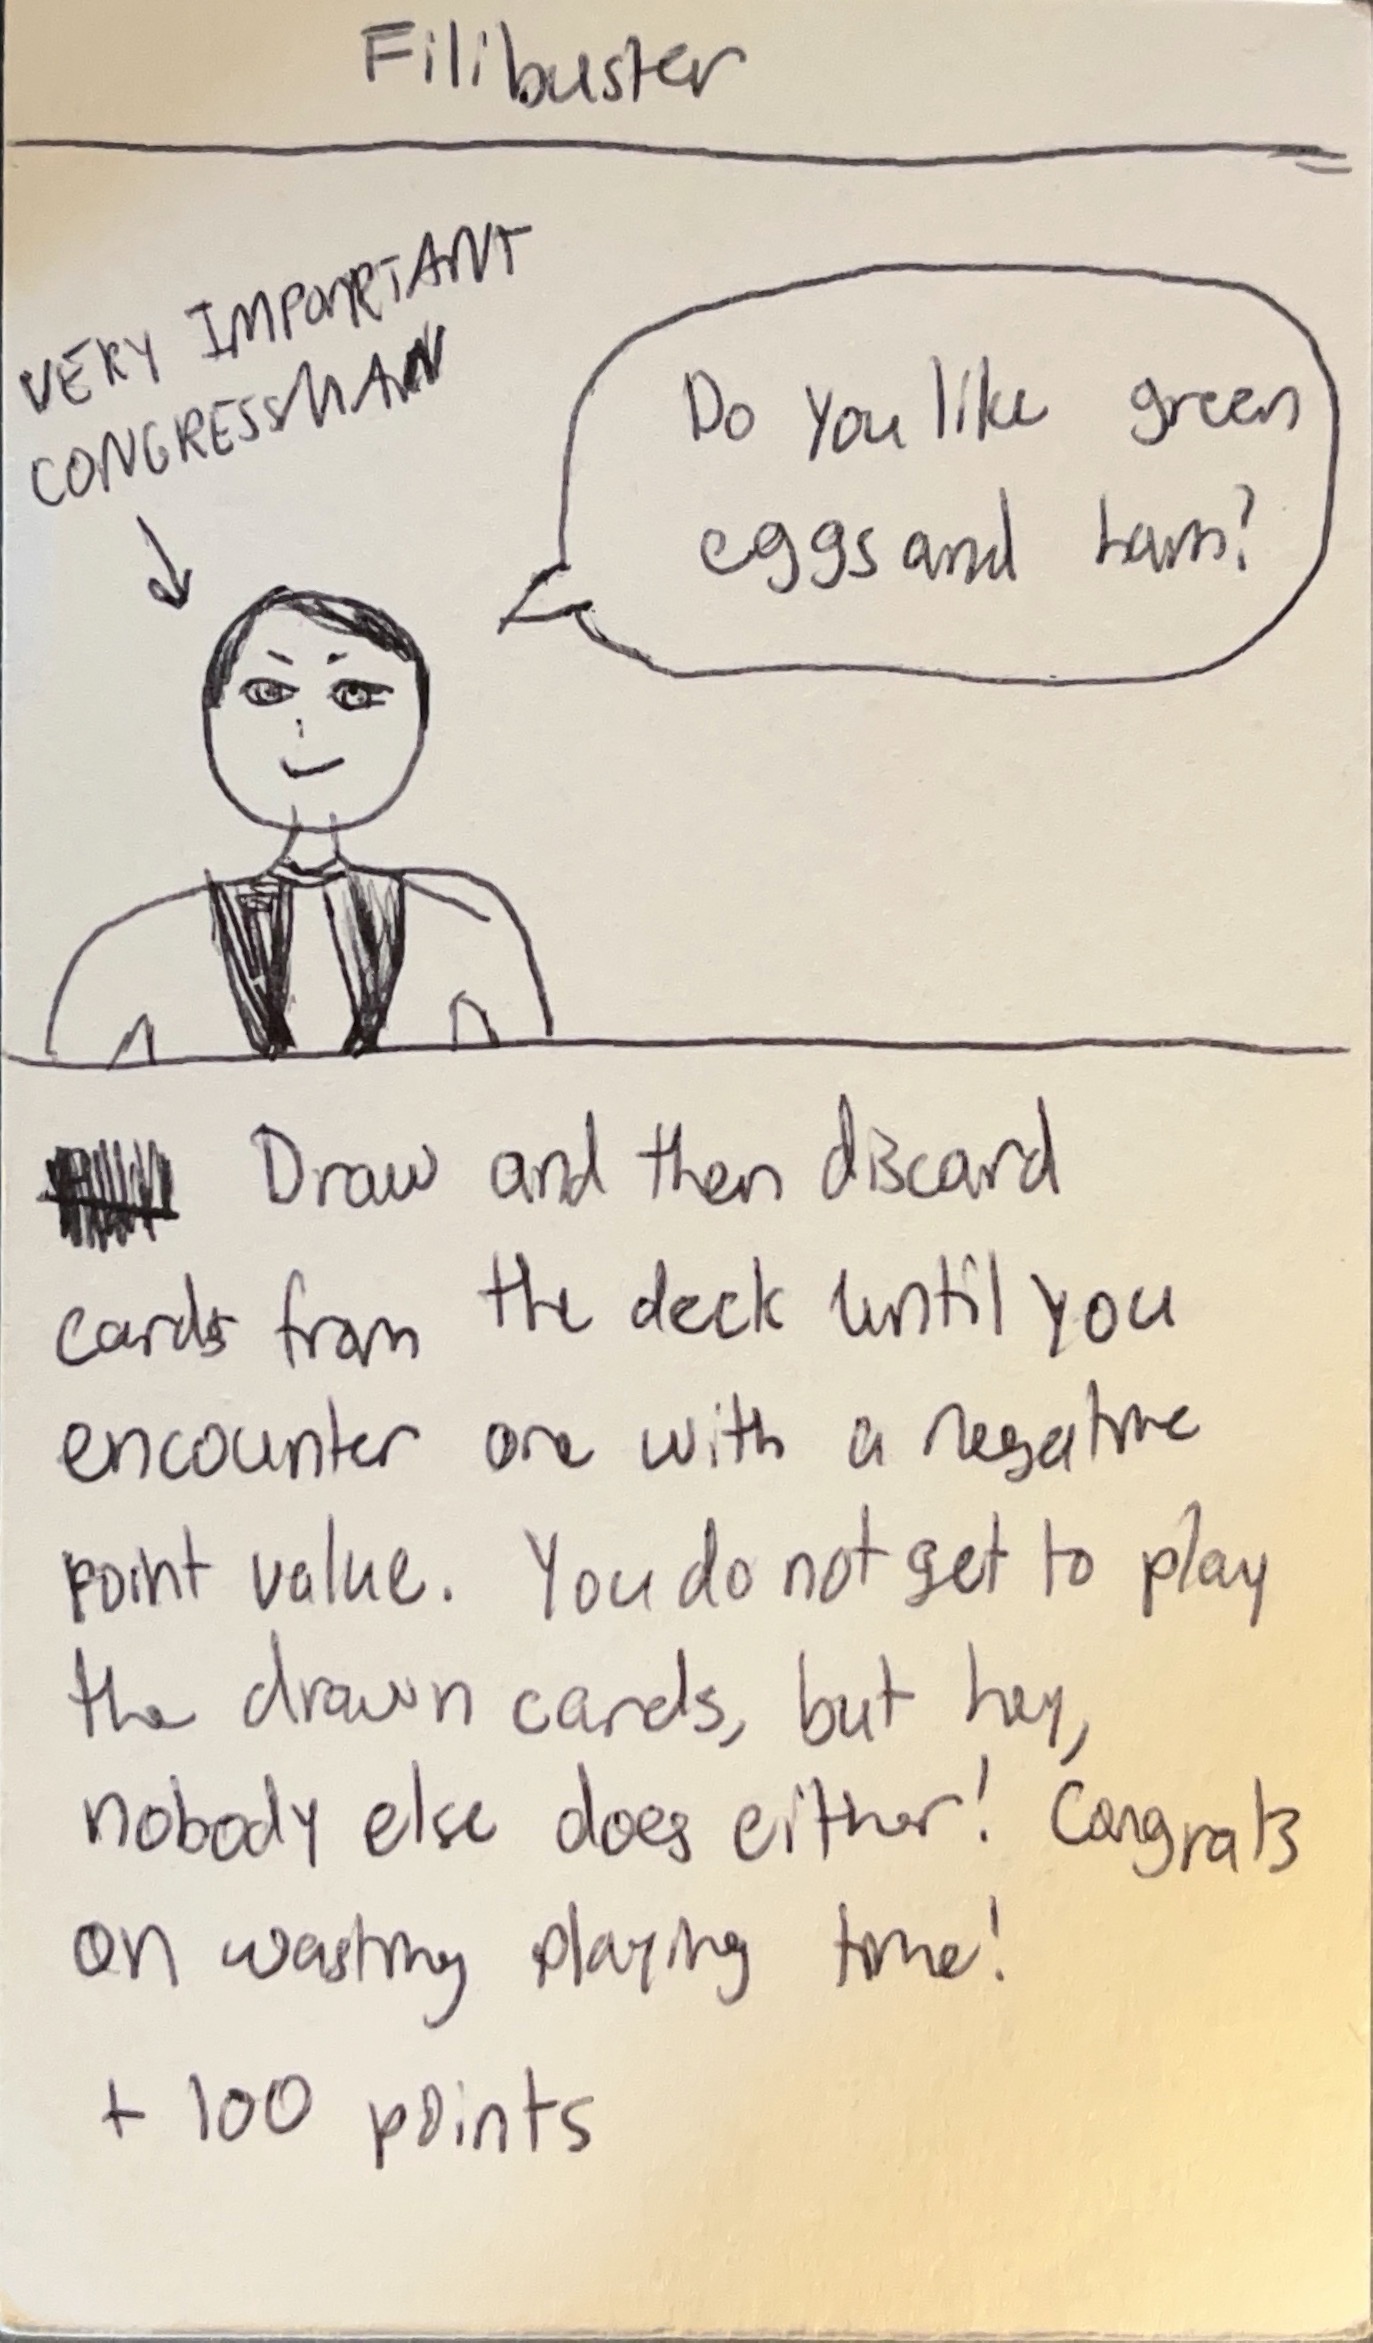 Filibuster
VERY IMPORTANT
CONGRESSMAN
Do you like green
eggs and ham?
Draw and then discard
cards from the deck until you
encounter one with a negative
point value. You do not get to play
the drawn cards, but hey,
nobody else does either! Congrats
on wasting playing time!
+ 100 points